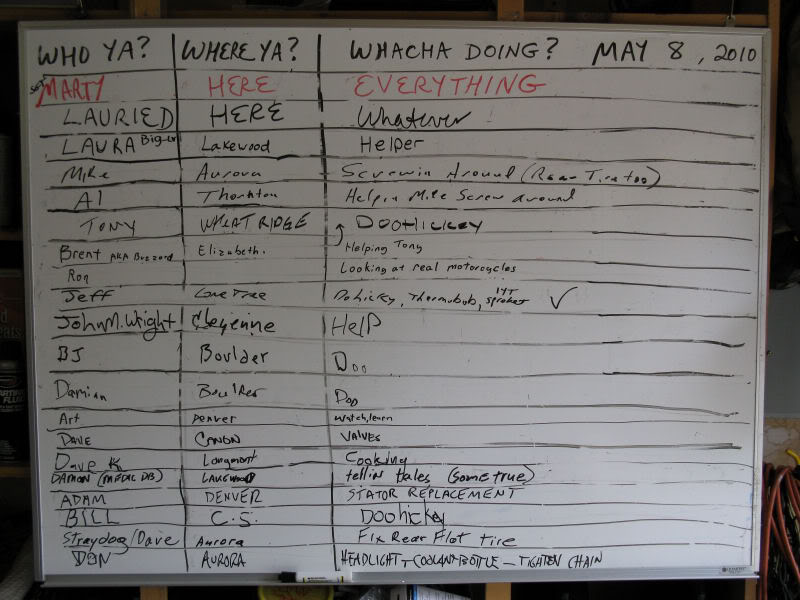 WHO YA? WHERE YA? WHACHA DOING? MAY 8, 2010
MARTY HERE EVERYTHING
LAURIED HERE Whatever
LAURA Lakewood Helper
Mike Aurora Screwin Around (Rear Tire too)
Al Thornton Helpin Mike Screw around
TONY WHEAT RIDGE DooHickey
Brent AKA Buzzard Elizabeth. Helping Tony
Ron Looking at real motorcycles
Jeff Lone Tree Dohicky, Thermobob, 14T sproket ✓
John M. Wright Cheyenne HelP
BJ Boulder Doo
Damian Boulder Doo
Art Denver Watch, learn
DAVE CANON VALVES
Dave K Longmont Cooking
DAMON (MEDIC DB) LAKEWOOD tellin tales (some true)
ADAM DENVER STATOR REPLACEMENT
BILL C.S. Doohickey
Straydog/Dave Aurora Fix Rear Flat tire
DON AURORA HEADLIGHT + COOLANT BOTTLE - TIGHTEN CHAIN